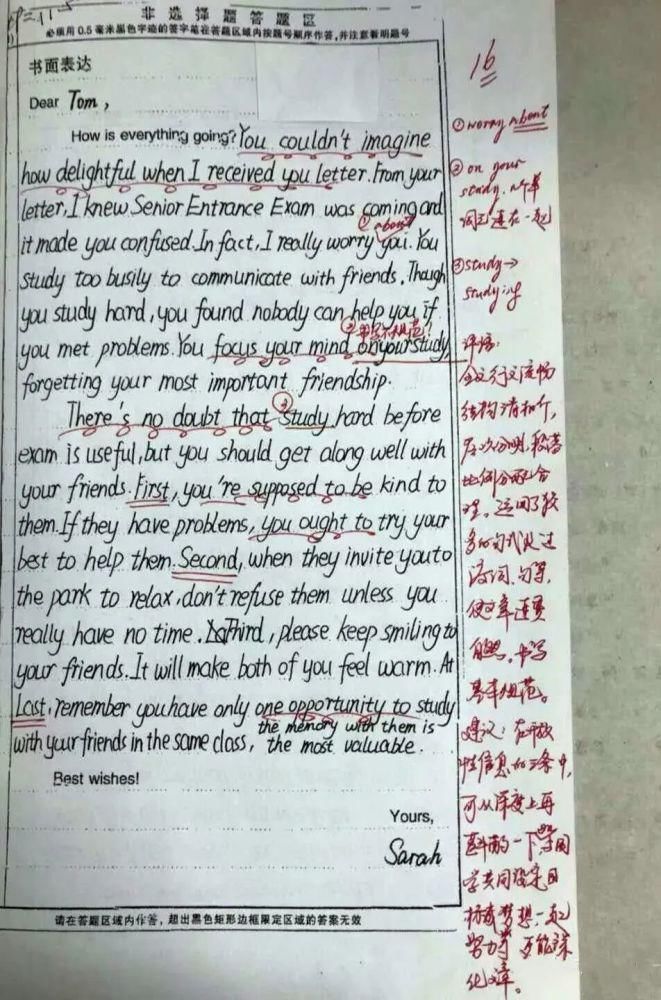 非选择题答题区
必须用0.5毫米黑色字迹的签字笔在答题区域内按题号顺序作答,并注意看明题号
书面表达
Dear Tom,
How is everything going? You couldn't imagine
how delightful when I received you letter. From your
letter, I knew Senior Entrance Exam was coming and
about
it made you confused. In fact, I really worry you. You
study too busily to communicate with friends. Though
you study hard, you found nobody can help you if
you met problems. You focus your mind onyourstudy,
forgetting your most important friendship.
There's no doubt that study hard before
exam is useful, but you should get along well with
your friends. First, you're supposed to be kind to
them. If they have problems, you ought to try your
best to help them. Second, when they invite youto
the park to relax, don't refuse them unless you
really have no time. Third, please keep smiling to
your friends. It will make both of you feel warm. At
Last, remember youhave only one opportunity to study
with your friends in the same class, the memory with them is
the most valuable.
Best wishes!
Yours,
Sarah
请在答题区域内作答,超出黑色矩形边框限定区域的答案无效
16
①worry about
②on your
study.
词连在一起
③study→
studying
评语:
全文行文流畅
结构清和个,
层次分明,
比例分配合
理。运用了较
多的句式及过
渡词、句等,
使文章连贯
自然。书写
基本规范。
建议:在开放
性信息的三条中,
可从深度上再
斟酌一下,
学共同设定目
标或梦想,一起
努力等更能深
化文章。